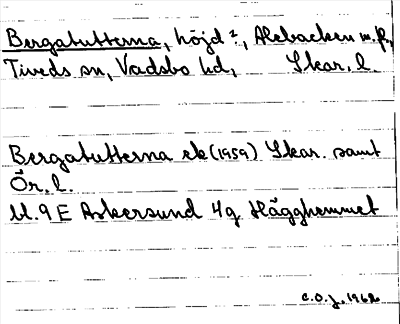 Bergatutterna, höjd ?, Alebacken m.fl.,
Tiveds sn, Vadsbo hd, Skar. l.
Bergatutterna ek (1959) Skar. samt
Ör. l.
Bl. 9 E Askersund 4g Hägghemmet
C.O.J. 1962